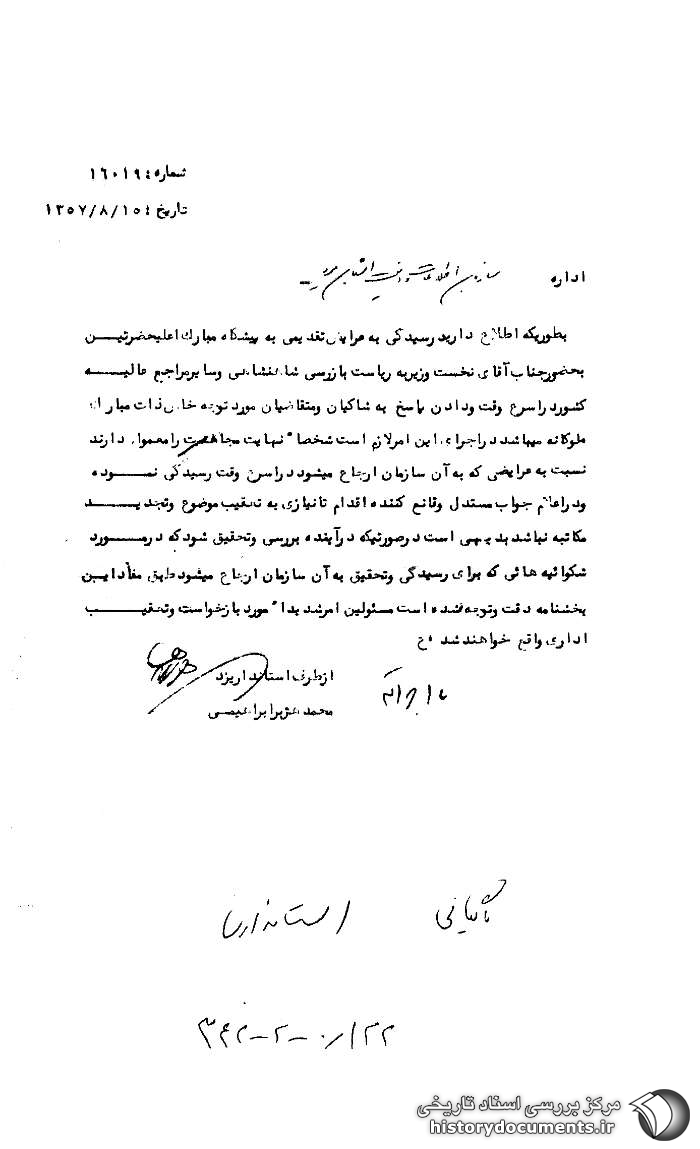 شماره: ۱٦۰۱۹
تاریخ: ۱۳۵۷/۸/۱۵
اداره سازمان اطلاعات و امنیت استان یزد
بطوریکه اطلاع دارید رسیدگی به عرایض تقدیمی به پیشگاه مبارک اعلیحضرتین
بحضور جناب آقای نخست وزیر به ریاست بازرسی شاهنشاهی و سایر مراجع عالیه
کشور در اسرع وقت و دادن پاسخ به شاکیان و متقاضیان مورد توجه خاص ذات مبارک
ملوکانه میباشد در اجرای این امر لازم است شخصا" نهایت مجاهدت را معمول دارند
نسبت به عرایضی که به آن سازمان ارجاع میشود در اسرع وقت رسیدگی نموده
و در اعلام جواب مستدل و قانع کننده اقدام تا نیازی به تعقیب موضوع و تجدید
مکاتبه نباشد بدیهی است در صورتیکه در آینده بررسی و تحقیق شود که در مورد
شکوائیه هائی که برای رسیدگی و تحقیق به آن سازمان ارجاع میشود طبق مفاد این
بخشنامه دقت و توجه نشده است مسئولین امر شدیدا" مورد بازخواست و تعقیب
اداری واقع خواهند شد
از طرف استاندار یزد
محمد ابراهیمی
بایگانی استانداری
۳۴۲-۲-۰/۲۲
مرکز بررسی اسناد تاریخی
historydocuments.ir